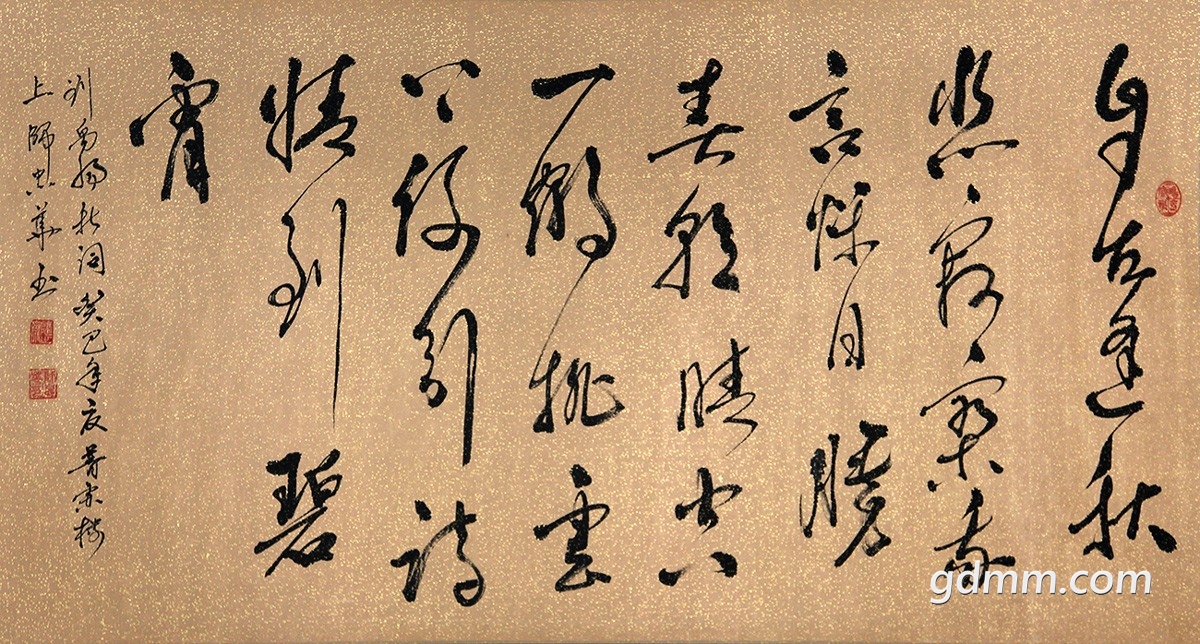 自古逢秋
悲寂寥我
言秋日勝
春朝晴空
一鶴排雲
上便引詩
情到碧
霄
刘禹锡秋词癸巳年夏
上師忠華书
gdmm.com